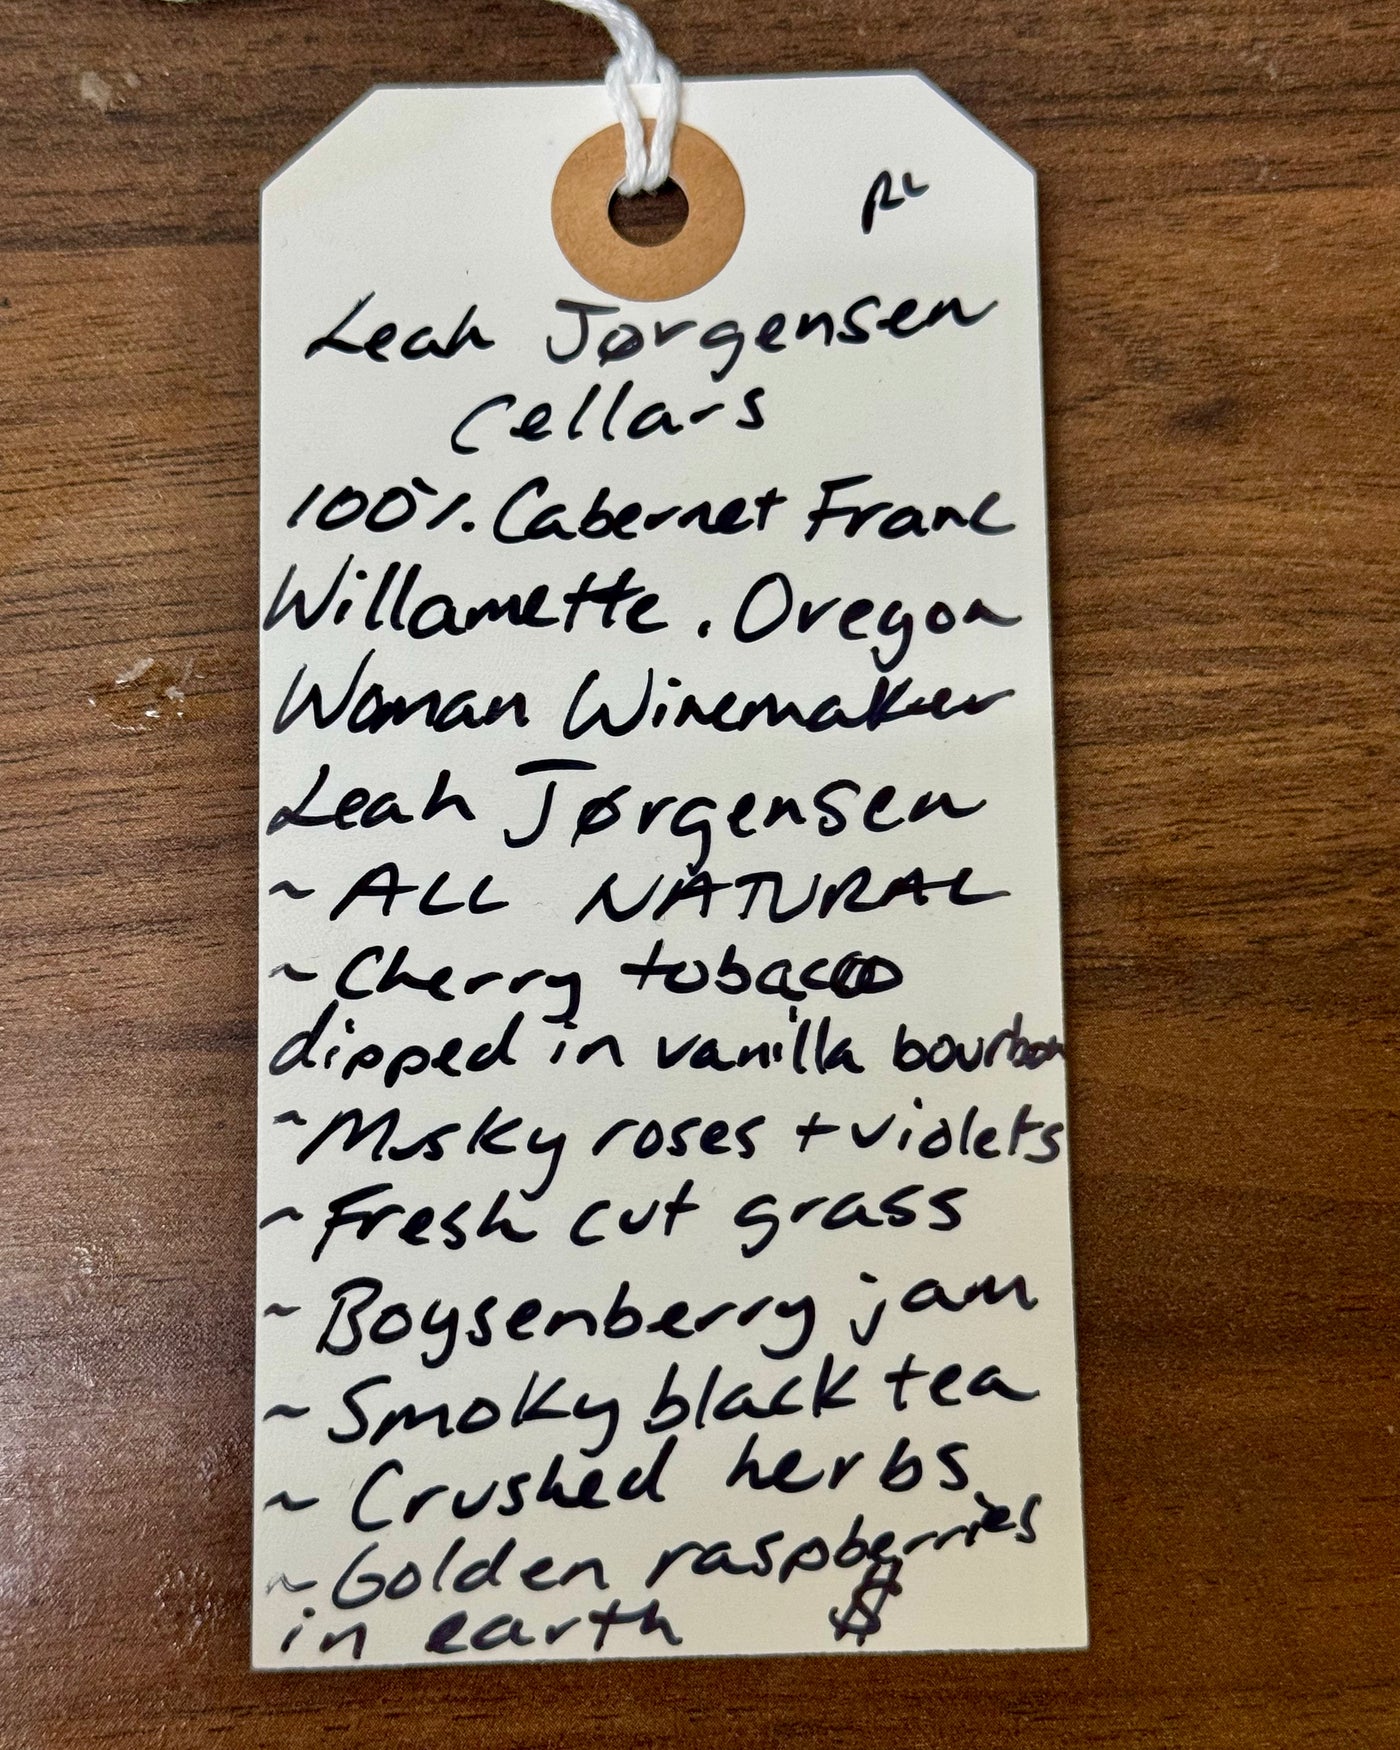 RL
Leah Jørgensen
Cellars
100%. Cabernet Franc
Willamette. Oregon
Woman Winemaker
Leah Jørgensen
~ ALL NATURAL
~ Cherry tobacco
dipped in vanilla bourbon
~ Musky roses + violets
~ Fresh cut grass
~ Boysenberry jam
~ Smoky black tea
~ Crushed herbs
~ Golden raspberries
in earth $